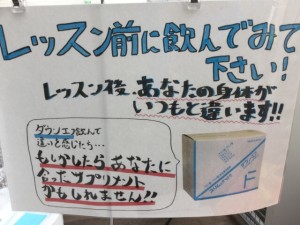 レッスン前に飲んでみて
下さい!
レッスン後、あなたの身体が
いつもと違います!!
飲んで
違いと感じたら…
もしかしたら、あなたに
合ったサプリメント
かもしれません!!
F